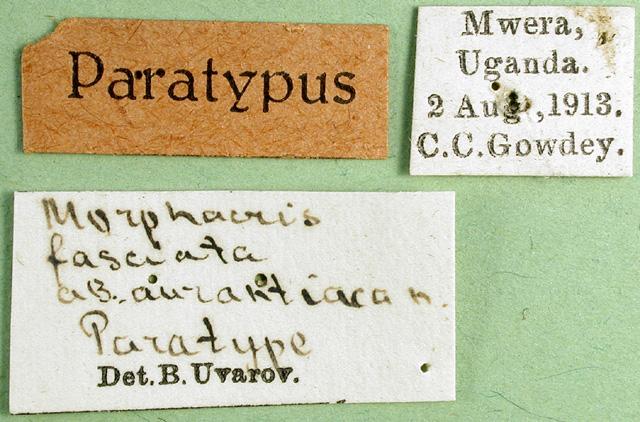 Paratypus
Mwera,
Uganda.
2 Aug., 1913.
C.C.Gowdey.
Morphacris
fasciata
ab. aurantiaca n.
Paratype
Det. B. Uvarov.